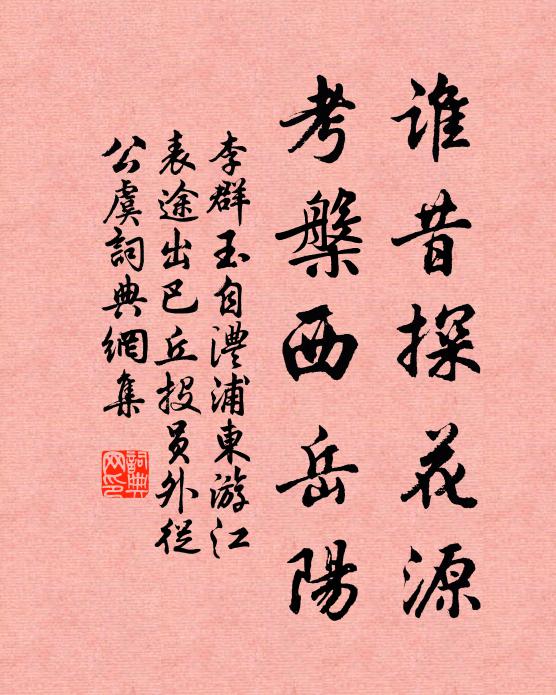 谁昔探花源
考槃西岳陽
李群玉自澧浦東游江
表途出巴丘投員外從
公虞詞典網集
詞典网印